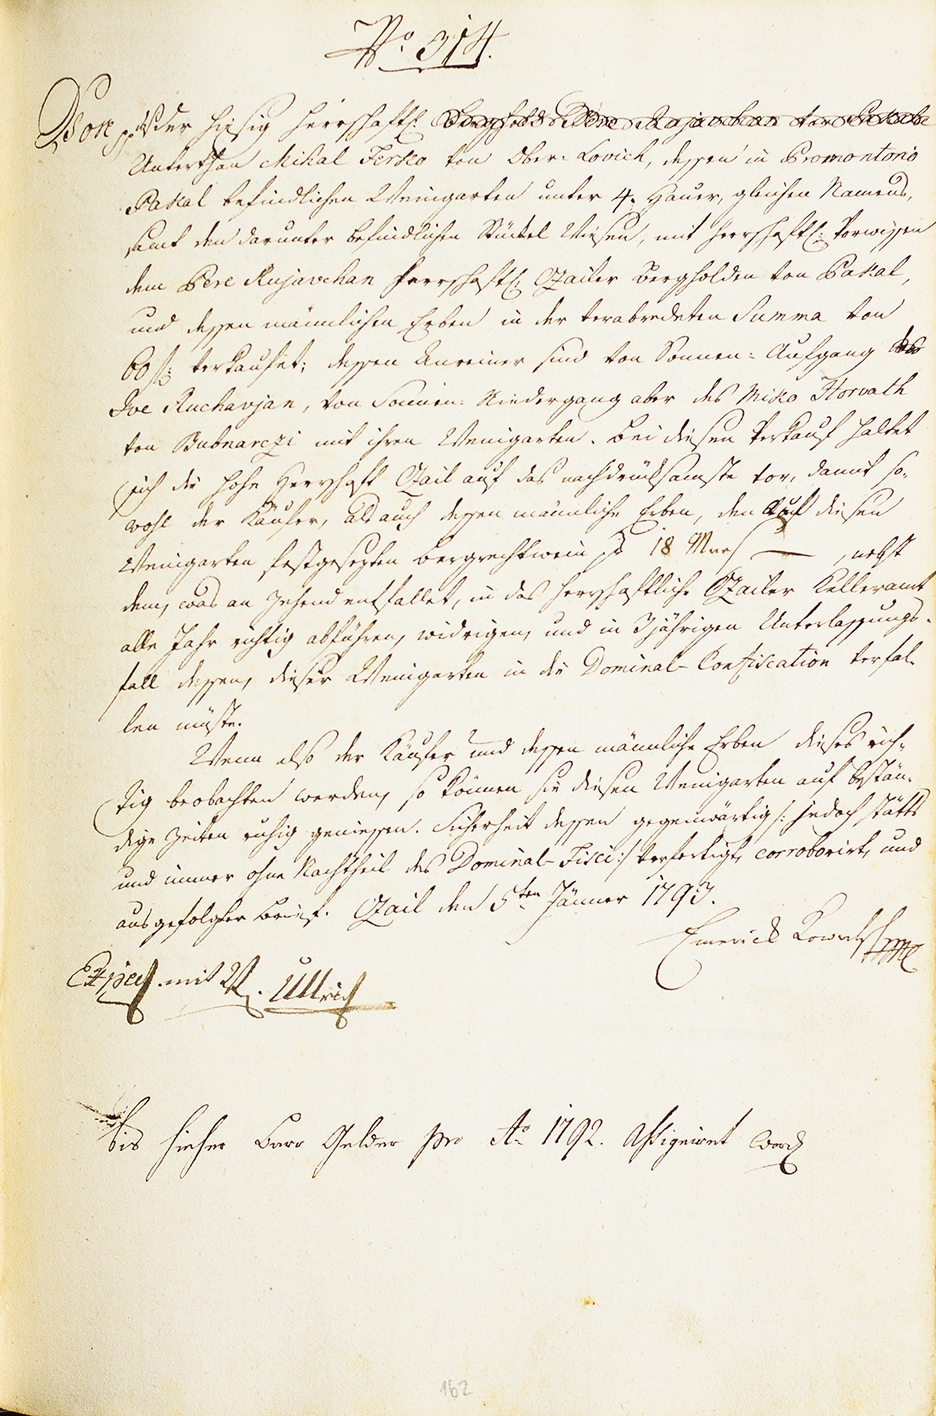 No 314.
der hiesig herrschaftl:
Unterthan Mikal Ferko von Ober-Lovich, dessen in Promontorio
Pakal befindlichen Weingarten unter 4. Hauer, gleichen Namens,
samt den darunter befindlichen Stückel Wiesen, mit herrschaftl: Vorwissen
dem Pere Rujavchan herrschaftl: Czailer Bergholden von Pakal,
und dessen männlichen Erben in der verabredeten Summa von
60 f: verkaufet; dessen Anrainer sind von Sonnen-Aufgang
Ive Ruchavjan, von Sonnen-Niedergang aber des Misko Horvath
von Bubnarczi mit ihren Weingarten. Bei diesen Verkauf haltet
sich die hohe Herrschaft Czail auf das nachdrüksamste vor, damit so-
wohl der Käufer, als auch dessen männliche Erben, den auf diesen
Weingarten festgesezten Bergrechtwein 18 , nebst
dem, was an Zehend entfallet, in das herrschaftliche Czailer Kelleramt
alle Jahr richtig abführen, widrigen, und in 3jährigen Unterlassungs-
fall dessen, dieser Weingarten in die Dominal-Confiscation verfal-
len müste.
Wenn also der Käufer und dessen männliche Erben dieses rich-
tig beobachten werden, so können sie diesen Weingarten auf bestän-
dige Zeiten ruhig geniessen. Sicherheit dessen gegenwärtig /: jedoch stätts
und immer ohne Nachtheil des Dominal-Fisci :/ verfertigt, corroborirt, und
ausgefolgter Brief. Czail den 5ten Jänner 1793.
Emerich
mit Ullrich
bis hieher Gelder pro Ao 1792. Assignirt word
162